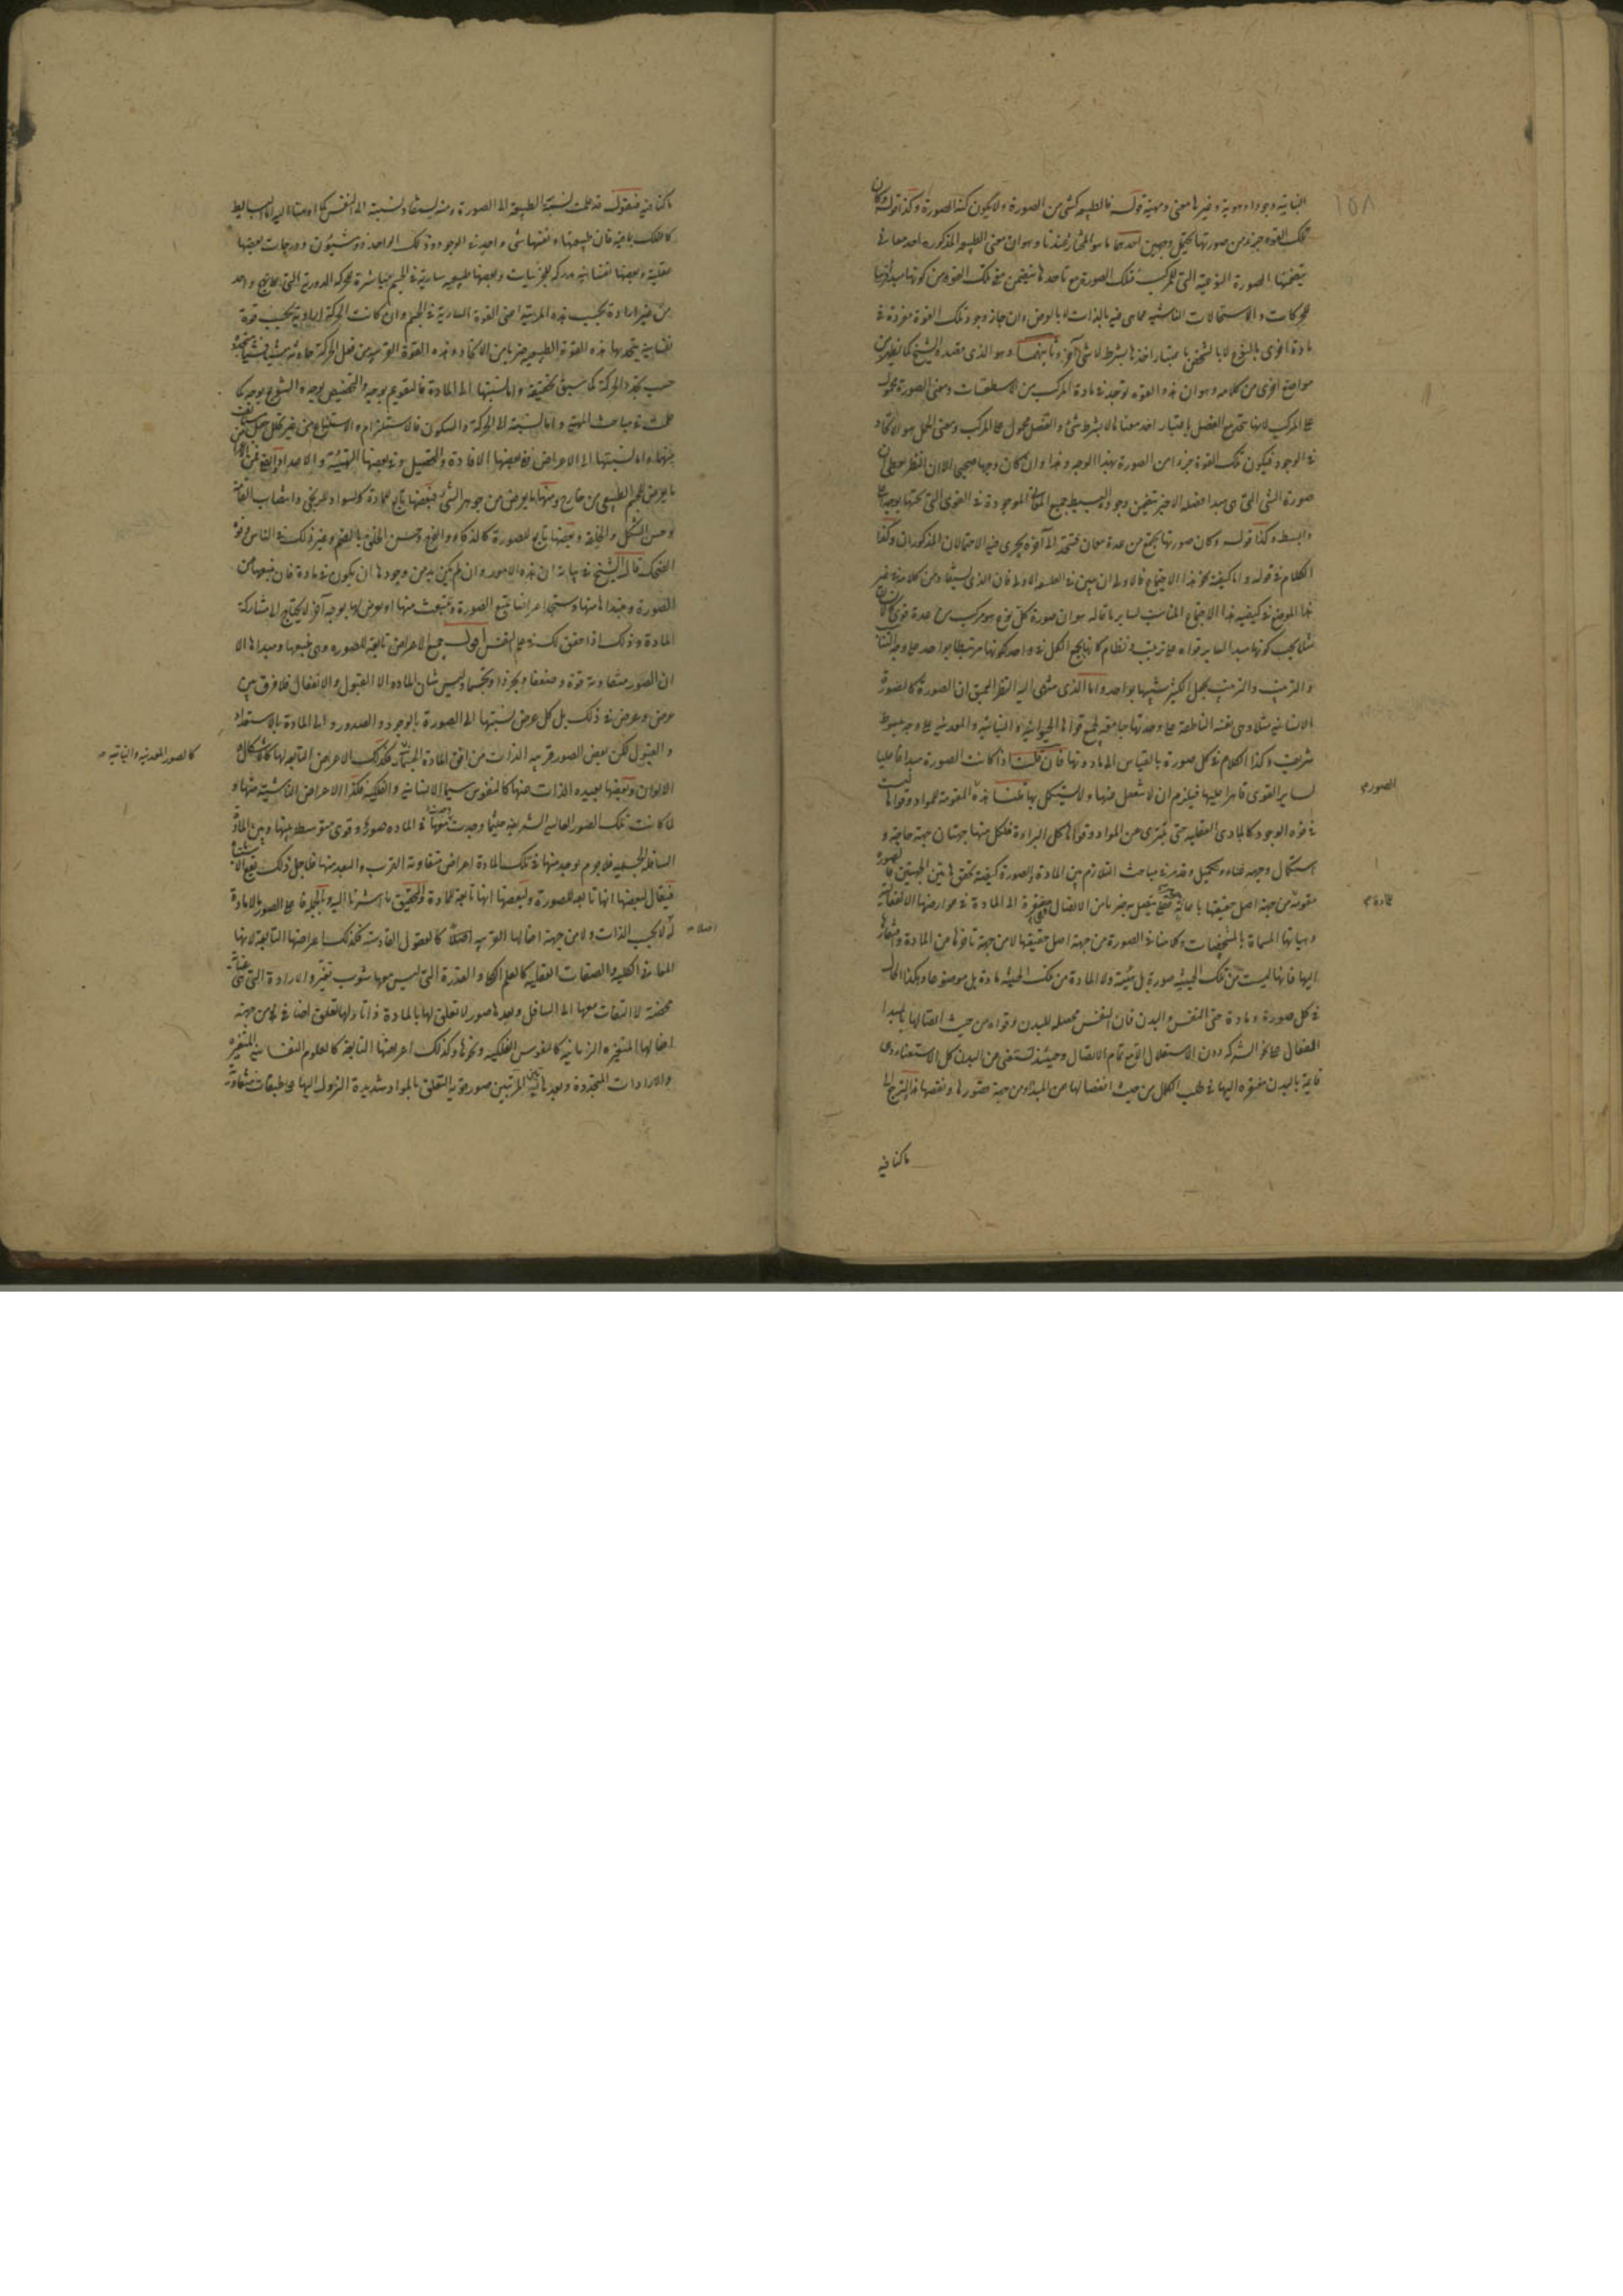 ١٥٨
النباتيه وجودا وهوية وغيرها معنى ومهية قوله فالطبيعه كشىء من الصورة ولا يكون كنه الصورة وكذا قوله وكان
تلك القوة جزء من صورتها يحتمل وجهين احدهما ما هو المختار عندنا وهو ان معنى الطبيعه المذكوره احد معانى
يتضمنها الصورة النوعية التى للمركب فتلك الصورة مع تاحدها يتضمن معنى تلك القوة من كونها مبدأ
للحركات والاستحالات الناشيه مما هى فيه بالذات لا بالعرض وان جاز وجود تلك القوة مفردة فى
مادة اخرى بالنوع لا بالشخص باعتبار اخذها بشرط لا شىء آخر وثانيهما وهو الذى يعتقده الشيخ كما يظهر من
مواضع اخرى من كلامه وهو ان هذه القوه توجد فى مادة المركب من الاسطقسات ومعنى الصورة محمول
على المركب لانها متحد مع الفصل باعتبار اخذ معناها لا بشرط شىء والفصل محمول على المركب ومعنى الحمل هو الاتحاد
فى الوجود فيكون تلك القوة جزءا من الصورة بهذا الوجه وهذا وان كان وجها صحيحا الا ان النظر يعطى ان
صورة الشىء التى هى مبدا فصله الاخير يتضمن وجوده البسيط جميع المعانى الموجودة فى القوى التى تحتها بوجه اعلى
وابسط وكذا قوله وكان صورتها يجتمع من عدة معان فتتحد الى آخره يجرى فيه الاحتمالان المذكوران وكذا
الكلام فى قوله واما كيفية نحو هذا الاجتماع فالاولى ان يبين فى الفلسفه الاولى فان الذى يستفاد من كلامه فى غير
هذا الموضع فى كيفيه هذا الاجتماع المناسب لساير ما قاله هو ان صورة كل نوع هو مركب من عدة قوى كالانسان
مثلا يجب كونها مبدا لساير قواه على ترتيب ونظام كانها يجمع الكل فى واحد لكونها مرتبطا بواحد على وجه التناسب
والترتيب والترتيب يجعل الكثير شبيها بواحد واما الذى ينتهى اليه النظر العميق ان الصورة كالصورة
الانسانيه مثلا وهى نفسه الناطقة على وحدتها جامعة لجميع قواها الحيوانيه والنباتيه والمعدنيه على وجه مبسوط
شريف وكذا الكلام فى كل صورة بالقياس الى ما دونها فان قلت اذا كانت الصورة مبدا فاعليا
لساير القوى قاهرا عليها فيلزم ان لا تنفعل عنها ولا يستكمل بها قلنا هذه المقومة للمواد وقواها ليست
فى قوة الوجود كالمبادى العقليه حتى يتبرى عن المواد وقواها كل البراءة فلكل منها جهتان جهة حاجة و
استكمال وجهه غناء وتكميل وقد مر فى مباحث التلازم بين المادة والصورة كيفية تحقق هاتين الجهتين فالصورة
مقومة من جهة اصل حقيقتها بامفارق متصل به ضربا من الاتصال مفتقرة الى المادة فى عوارضها الانفعالية
وهيأتها المسماة بالمشخصات وكلامنا فى الصورة من جهة اصل حقيقتها لا من جهة تأخرها من المادة وافتقارها
اليها فانها ليست من تلك الحيثيه صورة بل هيئة ولا المادة من تلك الحيثيه مادة بل موضوعا وهكذا الحال
فى كل صورة ومادة حتى النفس والبدن فان النفس محصله للبدن وقواه من حيث اتصالها بالمبدا
الفعال على نحو الشركه دون الاستقلال الا مع تمام الاتصال وحينئذ تستغنى عن البدن كل الاستغناء وهى
قائمة بالبدن مفتقره اليها فى طلب الكمال من حيث انفصالها عن المبداء ومن جهة قصورها ونقصها فلنرجع الى
ما كنا فيه
الصورى
للمادة
ما كنا فيه فنقول قد علمت نسبة الطبيعة الى الصورة ومنه يستفاد نسبته الى النفس كما اومأنا اليه اما البسائط
كالفلك بما فيه فان طبيعتها ونفسها شىء واحد فى الوجود وذلك الواحد ذو شئون ودرجات بعضها
عقلية وبعضها نفسانيه مدركه للجزئيات وبعضها طبيعيه ساريه فى الجسم مباشرة لحركته الدورية التى على نهج واحد
من غير ارادة بحسب هذه المرتبه اعنى القوة السارية فى الجسم وان كانت الحركة اراديه بحسب قوة
نفسانيه يتحد بها هذه القوة الطبيعيه ضربا من الاتحاد وهذه القوة القريبه من فعل الحركة حادثه شيئا فشيئا متجددة
حسب تجدد الحركة كما سبق تحقيقه واما نسبتها الى المادة فالتقويم بوجه والتخصيص بوجه والتنويع بوجه كما
علمت فى مباحث المهية واما نسبة الى الحركة والسكون فالاستلزام والاستتباع من غير تخلل جعل مستأنف
بينهما واما نسبتها الى الاعراض ففى بعضها الافادة والتحصيل وفى بعضها التهيئة والاعداد
ما يعرض للجسم الطبيعى من خارج ومنها ما يعرض من جوهر الشىء فبعضها تابع للمادة كالسواد للزنجى وانتصاب القامة
وحسن الشكل والخلقة وبعضها تابع للصورة كالذكاء والفرح وحسن الخلق بالفهم وغير ذلك فى الناس وقوة
الضحك قال الشيخ فى بيانه ان هذه الامور وان لم يكن بد من وجودها ان يكون فى مادة فان منبعها من
الصورة ومبدأها منها وستجد اعراضا يتبع الصورة وتنبعث منها او يعرض لها بوجه آخر لا يحتاج الى مشاركة
المادة وذلك اذا حقق لك فى علم النفس اقول جميع الاعراض تابعة للصوره وهى منبعها ومبداها الا
ان الصور متفاوته قوة وضعفا وتجردا وتجسما وليس شان الماده الا القبول والانفعال فلا فرق بين
عرض وعرض فى ذلك بل كل عرض نسبتها الى الصورة بالوجود والصدور والى المادة بالاستعداد
والقبول لكن بعض الصور قريبه الذات من افق المادة الجسمانيه فكذلك الاعراض التابعه لها كالاشكال و
الالوان وبعضها بعيده الذات منها كالنفوس سيما الانسانيه والفلكيه فكذا الاعراض الناشية منها و
لما كانت تلك الصور العاليه الشريفه حيثما وجدت وجدت معها فى الماده صور وقوى متوسطه بينها وبين المادة
السافله الجسميه فلا جرم يوجد منها فى تلك المادة اعراض متفاوته القرب والبعد منها فلاجل ذلك يقع الاشتباه
فيقال لبعضها انها تابعه للصورة ولبعضها انها تابعة للمادة والتحقيق ما اشرنا اليه وبالجمله فاعلى الصور ما لا مادة
له لا بحسب الذات ولا من جهة افعالها القريبه اصلا كالعقول القادسه فكذلك اعراضها التابعة لانها
المعارف الكليه والصفات العقليه كالعلم الكلى والقدرة التى ليس معها شوب تغير والارادة التى هى عناية
محضة لا التفات معها الى السافل وبعدها صور لا تعلق لها بالمادة ذاتا ولها تعلق اضافى من جهة
افعالها المتغيره الزمانيه كالنفوس الفلكيه ونحوها وكذلك اعراضها التابعة كالعلوم النفسانيه المتغيره
والارادات المتجددة وبعد هاتين المرتبتين صور قويه التعلق بالمواد شديدة النزول اليها على طبقات متفاوتة
كالصور المعدنيه والنباتيه صح
اصلا